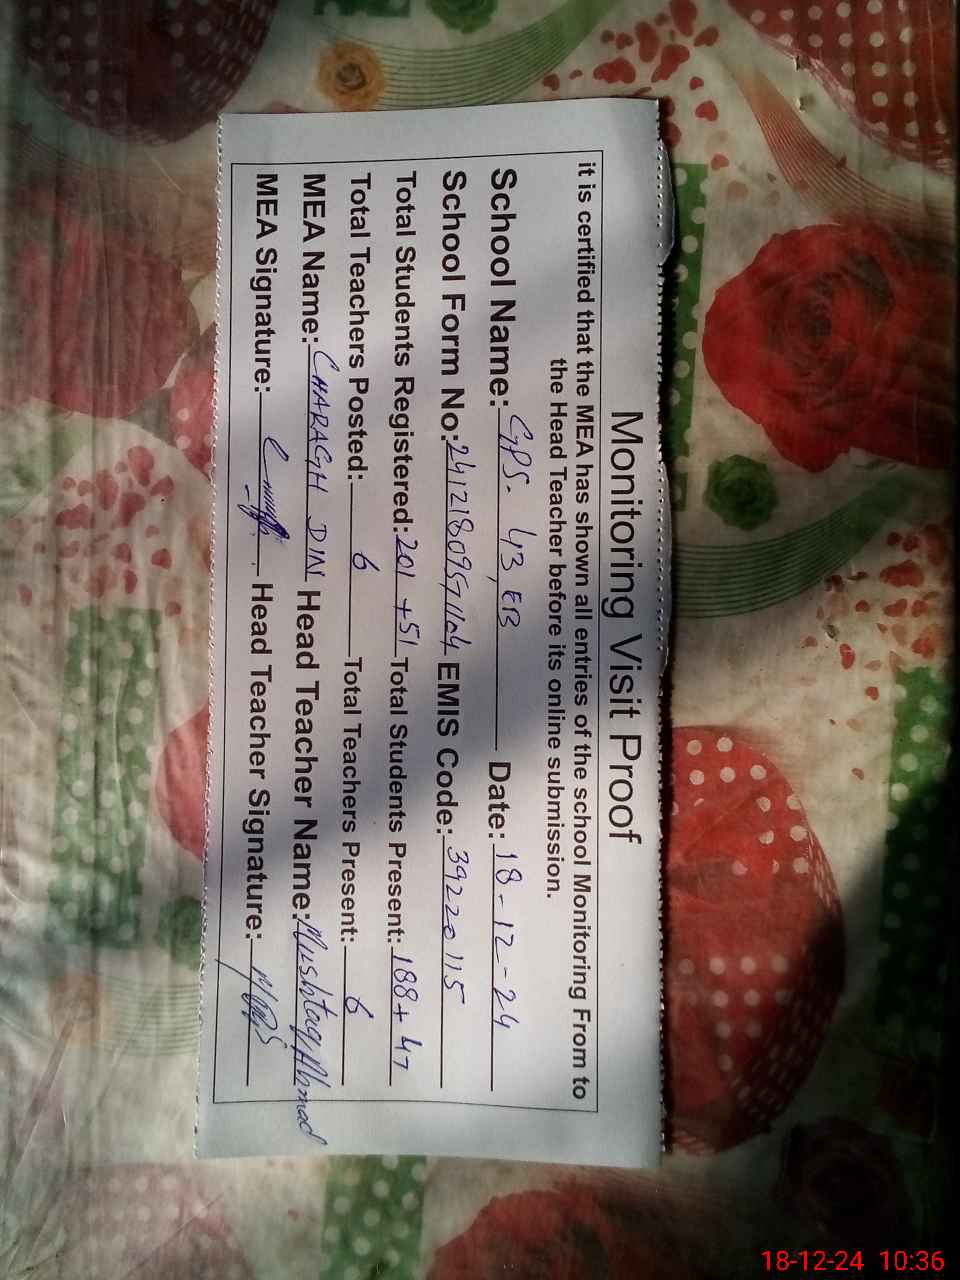 Monitoring Visit Proof
it is certified that the MEA has shown all entries of the school Monitoring From to
the Head Teacher before its online submission.
School Name: GPS. 43, EB Date: 18-12-24
School Form No: EMIS Code: 39220115
Total Students Registered: 201 +51 Total Students Present: 188+ 47
Total Teachers Posted: 6 Total Teachers Present: 6
MEA Name: CHARAGH DIN Head Teacher Name: Mushtaq Ahmad
MEA Signature: Head Teacher Signature:
18-12-24 10:36